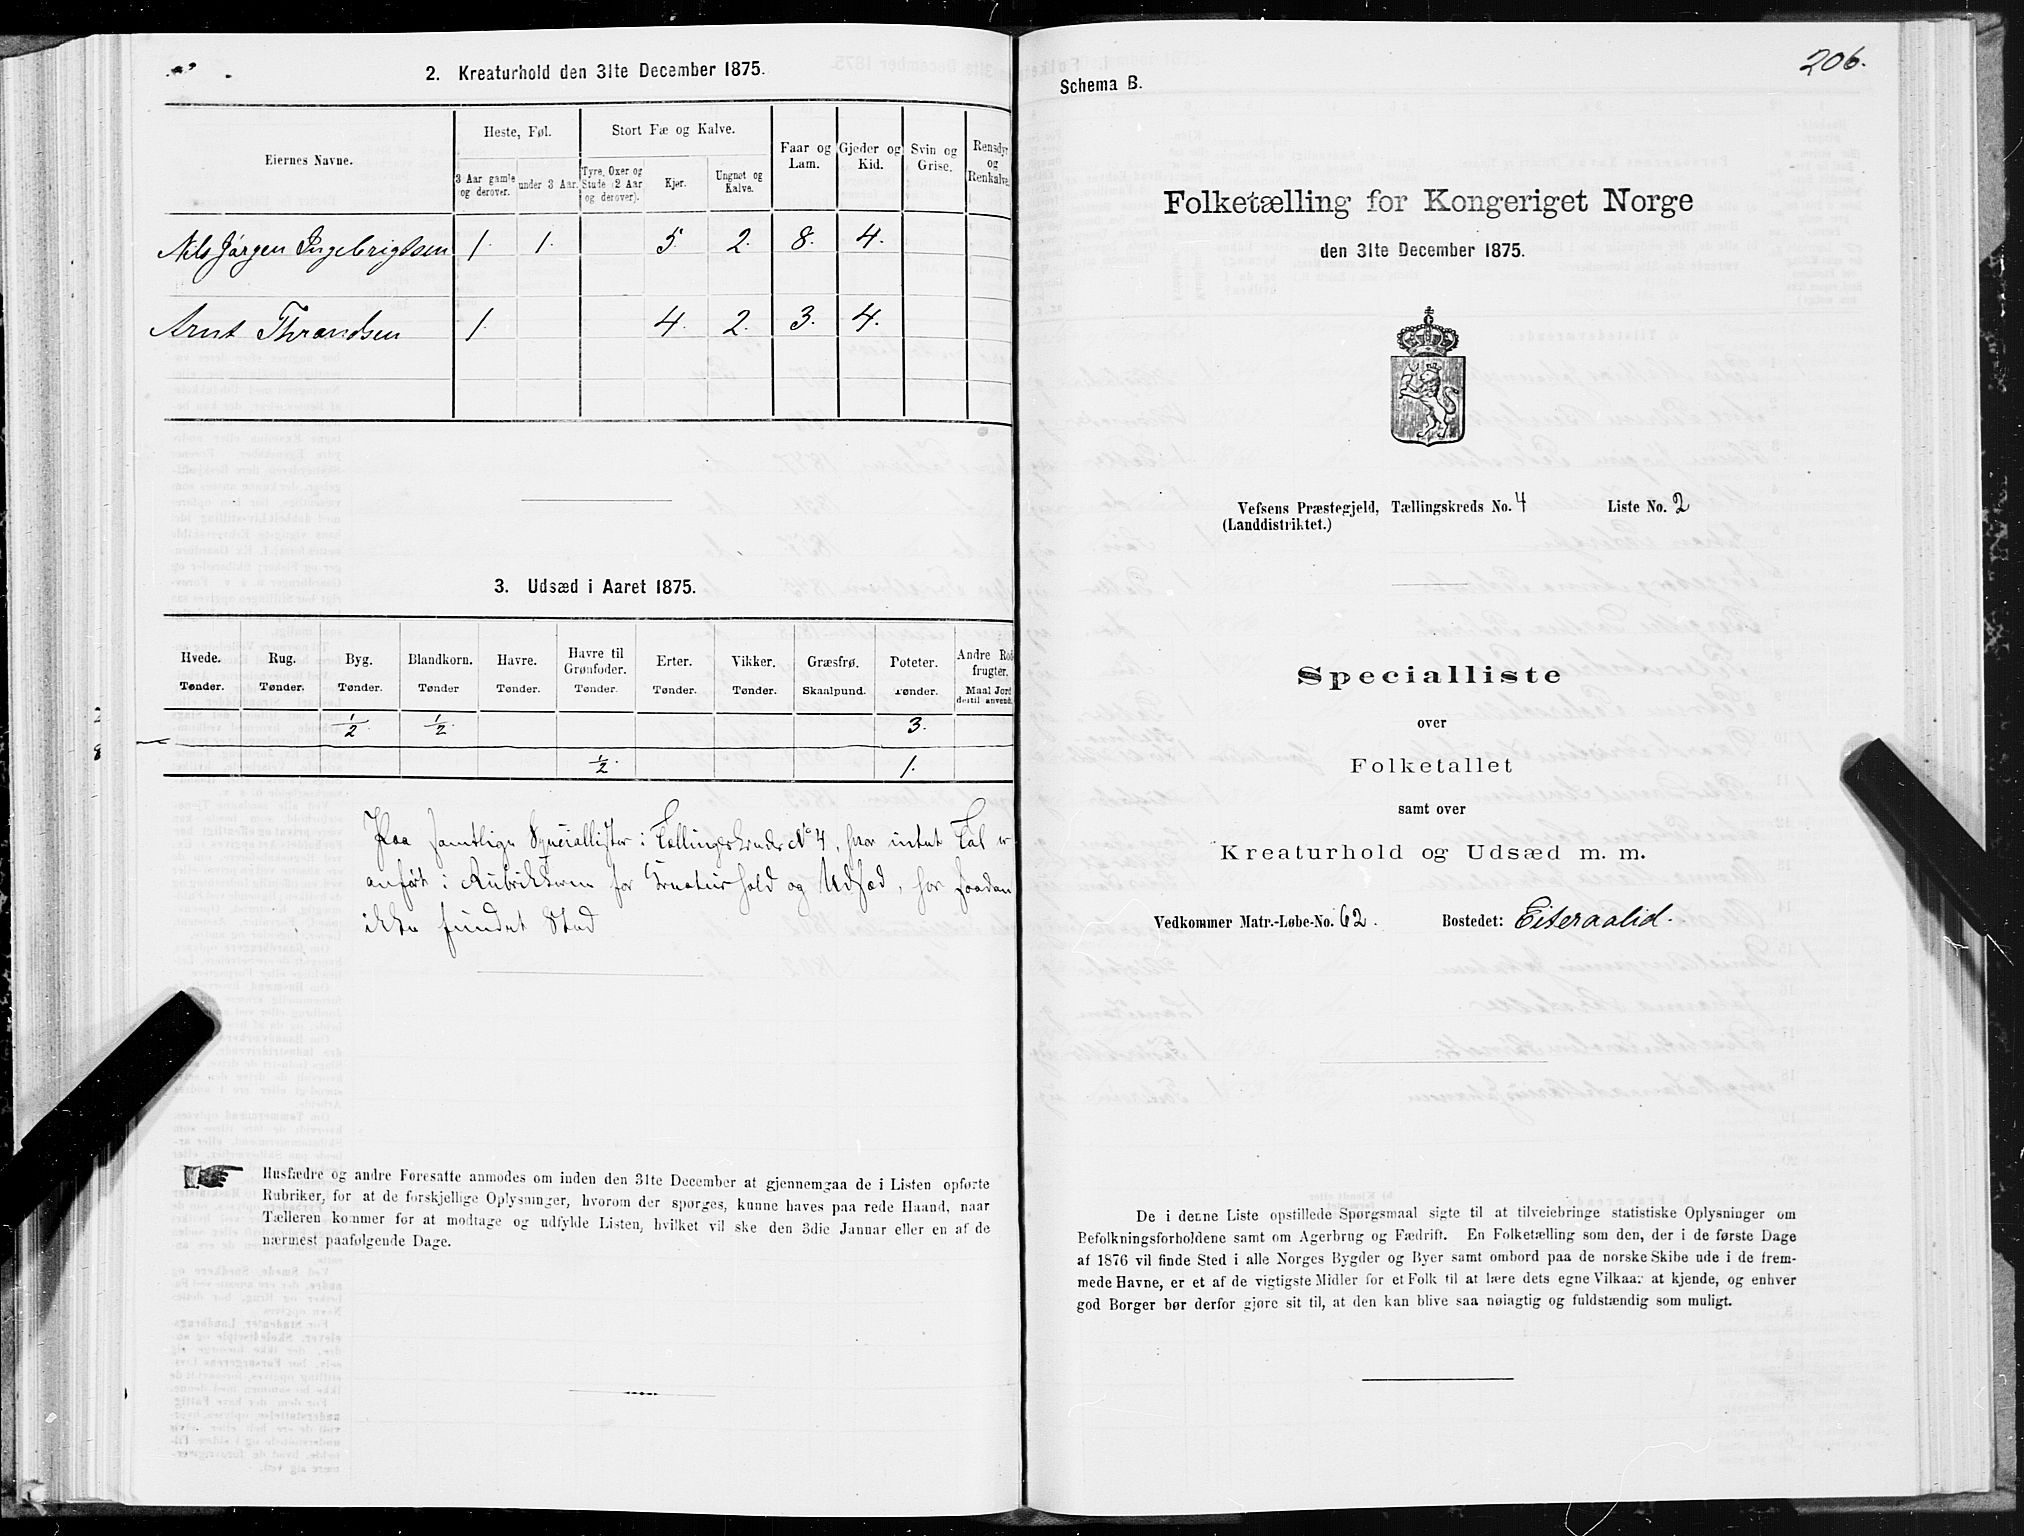 2. Kreaturhold den 31te December 1875.
Eiernes Navne.
Heste, Føl.
Stort Fæ og Kalve.
Faar og Lam.
Gjeder og Kid.
Svin og Grise.
Rensdyr og Renkalve.
3 Aar gamle og derover.
under 3 Aar.
Tyre, Oxer og Stude (2 Aar og derover).
Kjør.
Ungnøt og Kalve.
Nils Jørgen Ingebrigtsen 1. 1. 5. 2. 8. 4.
Arnt Thrandsen 1. 4. 2. 3. 4.
3. Udsæd i Aaret 1875.
Hvede. Rug. Byg. Blandkorn. Havre. Havre til Grønfoder. Erter. Vikker. Græsfrø. Poteter. Andre Rodfrugter.
Tønder. Tønder. Tønder. Tønder Tønder. Tønder. Tønder. Tønder. Skaalpund. Tønder. Maal Jord dertil anvendt.
1/2 1/2 3.
1/2 1.
Paa samtlige Speciallister i Tællingskreds No 4, hvor intet Tal er
anført i Rubrikkerne for Kreaturhold og Udsæd, har saadan
ikke fundet Sted
Husfædre og andre Foresatte anmodes om inden den 31te December at gjennemgaa de i Listen opførte
Rubriker, for at de forskjellige Oplysninger, hvorom der spørges, kunne haves paa rede Haand, naar
Tælleren kommer for at modtage og udfylde Listen, hvilket vil ske den 3die Januar eller en af de
nærmest paafølgende Dage.
206.
Schema B.
Folketælling for Kongeriget Norge
den 31te December 1875.
Vefsens Præstegjeld, Tællingskreds No. 4 Liste No. 2
(Landdistriktet.)
Specialliste
over
Folketallet
samt over
Kreaturhold og Udsæd m. m.
Vedkommer Matr.-Løbe-No. 62. Bostedet: Eiteraalid.
De i denne Liste opstillede Spørgsmaal sigte til at tilveiebringe statistiske Oplysninger om
Befolkningsforholdene samt om Agerbrug og Fædrift. En Folketælling som den, der i de første Dage
af 1876 vil finde Sted i alle Norges Bygder og Byer samt ombord paa de norske Skibe ude i de frem-
mede Havne, er et af de vigtigste Midler for et Folk til at lære dets egne Vilkaar at kjende, og enhver
god Borger bør derfor gjøre sit til, at den kan blive saa nøiagtig og fuldstændig som muligt.